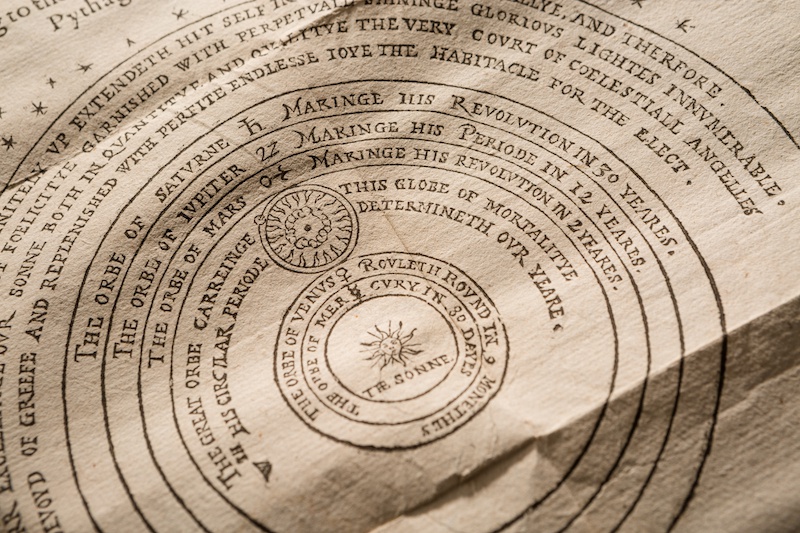 g to the
Pythag
LLYE, AND THERFORE
NITELY VP EXTENDETH HIT SELF IN
GARNISHED WITH PERPETVALL SHININGE GLORIOVS LIGHTES INNVMERABLE.
FOELICITYE
SONNE BOTH IN QVANTITYE AND QVALITYE THE VERY COVRT OF COELESTIALL ANGELLES
DEVOYD OF GREEFE AND REPLENISHED WITH PERFITE ENDLESSE IOYE THE HABITACLE FOR THE ELECT.
THE ORBE OF SATVRNE ♄ MAKINGE HIS REVOLVTION IN 30 YEARES.
THE ORBE OF IVPITER ♃ MAKINGE HIS PERIODE IN 12 YEARES.
THE ORBE OF MARS ♂ MAKINGE HIS REVOLVTION IN 2 YEARES.
THE GREAT ORBE CARREINGE THIS GLOBE OF MORTALITYE
IN HIS CIRCVLAR PERIODE DETERMINETH OVR YEARE
THE ORBE OF VENVS ♀ ROVLETH ROVND IN 9 MONETHES
THE ORBE OF MER ☿ CVRY IN 80 DAYES
THE SONNE.